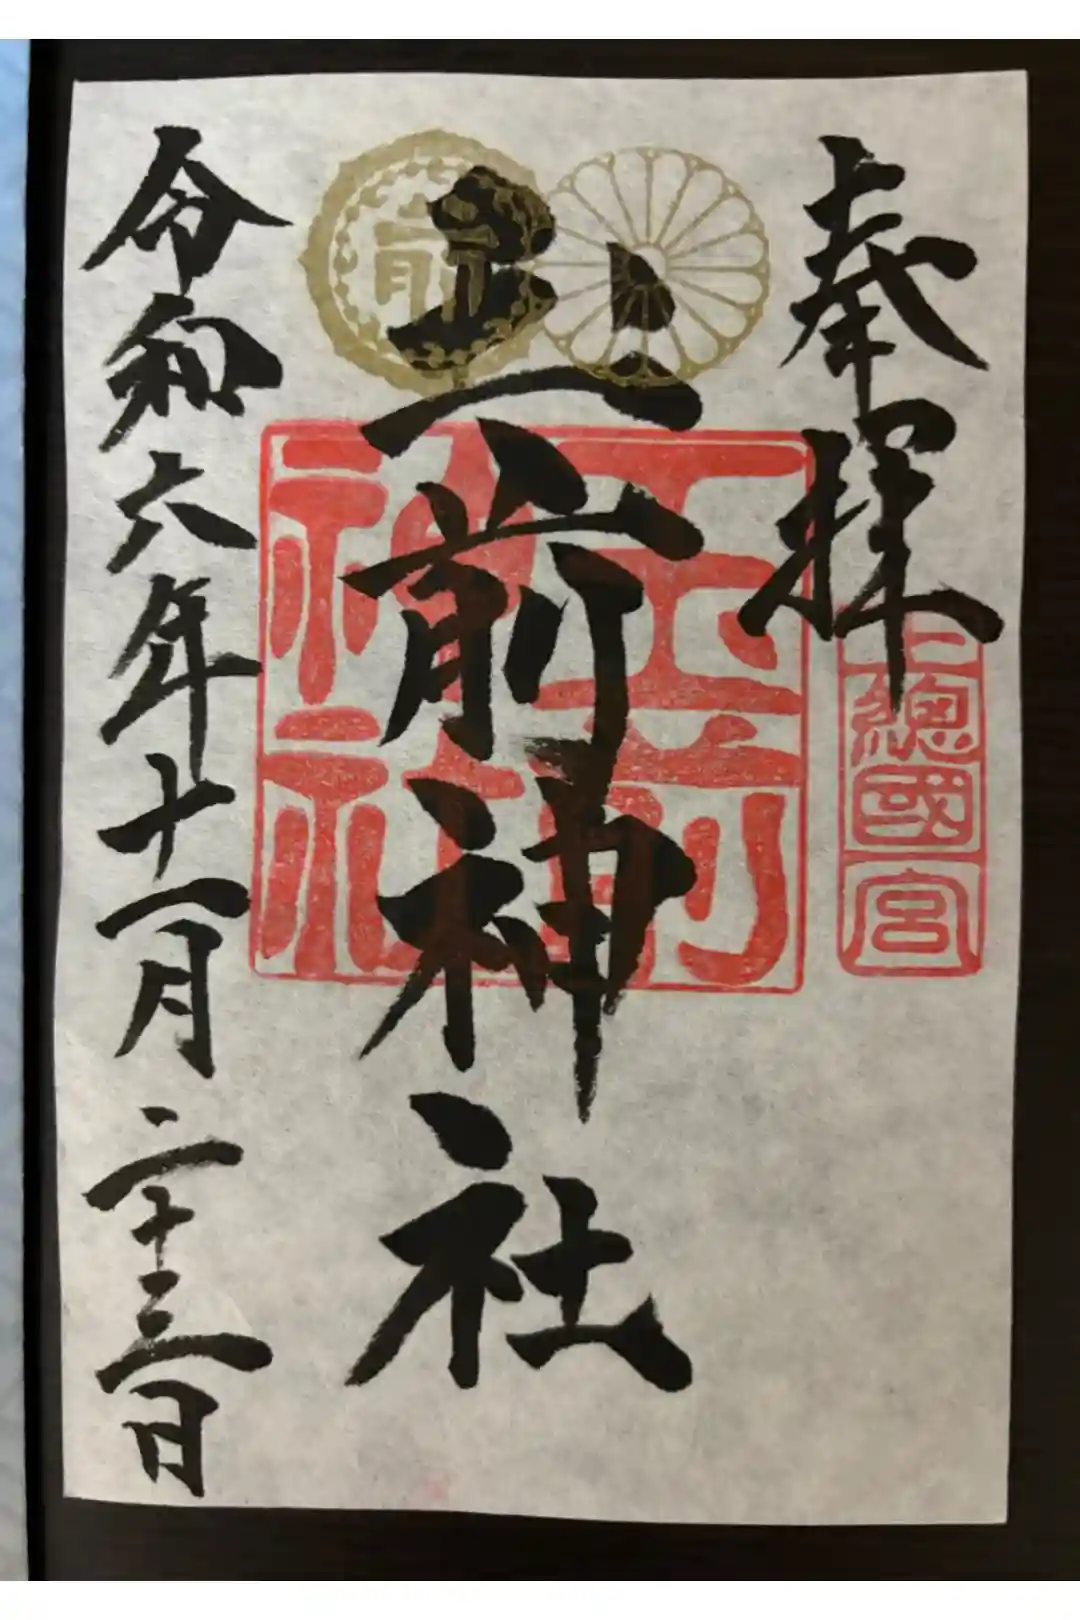 奉拝
上總國一宮
玉前神社
玉前神社
前
令和六年十一月二十三日